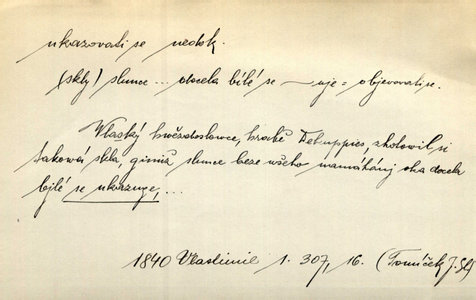 ukazovati se nedok.
(skly) slunce... docela bílé se — uje = objevovati se.
Vlaský hvězdoslovce, hrabě Dekuppies, zhotowil si
takowá skla, gimiž slunce beze wšeho namáhánj oka docela
bjlé se ukazuge,...
1840 Vlastimil 1. 307, 16. (Tomíček J. Sl.)